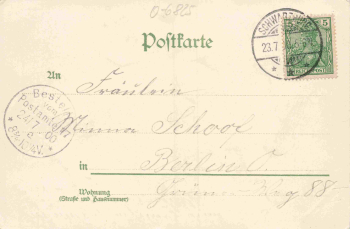 0-6825
Postkarte
SCHWARZ
23.7
5
An
Fräulein
Bestellt
vom
Postamte
24/7 00
Minna Schoof
in
Berlin O.
Wohnung
(Straße und Hausnummer)
Grüner Weg 88